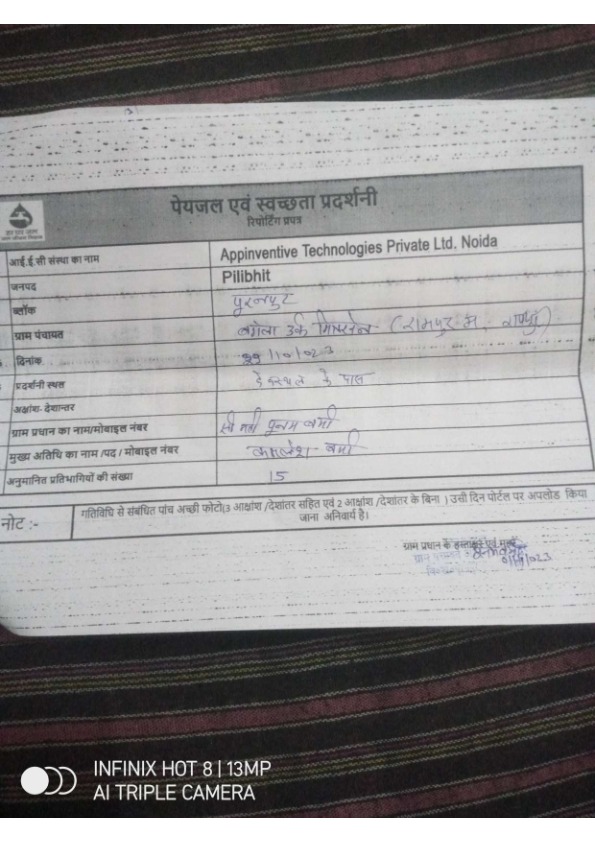 पेयजल एवं स्वच्छता प्रदर्शनी
रिपोर्टिंग प्रपत्र
आई.ई.सी संस्था का नाम Appinventive Technologies Private Ltd. Noida
जनपद Pilibhit
ब्लॉक पूरनपुर
ग्राम पंचायत उर्फ
दिनांक
प्रदर्शनी स्थल के पास
अक्षांश- देशान्तर
ग्राम प्रधान का नाम/मोबाइल नंबर श्री मती पूनम वर्मा
मुख्य अतिथि का नाम /पद / मोबाइल नंबर कमलेश - वर्मा
अनुमानित प्रतिभागियों की संख्या 15
नोट :- गतिविधि से संबंधित पांच अच्छी फोटो(3 आक्षांश /देशांतर सहित एवं 2 आक्षांश /देशांतर के बिना ) उसी दिन पोर्टल पर अपलोड किया
जाना अनिवार्य है।
ग्राम प्रधान के हस्ताक्षर एवं मुहर
INFINIX HOT 8 | 13MP
AI TRIPLE CAMERA